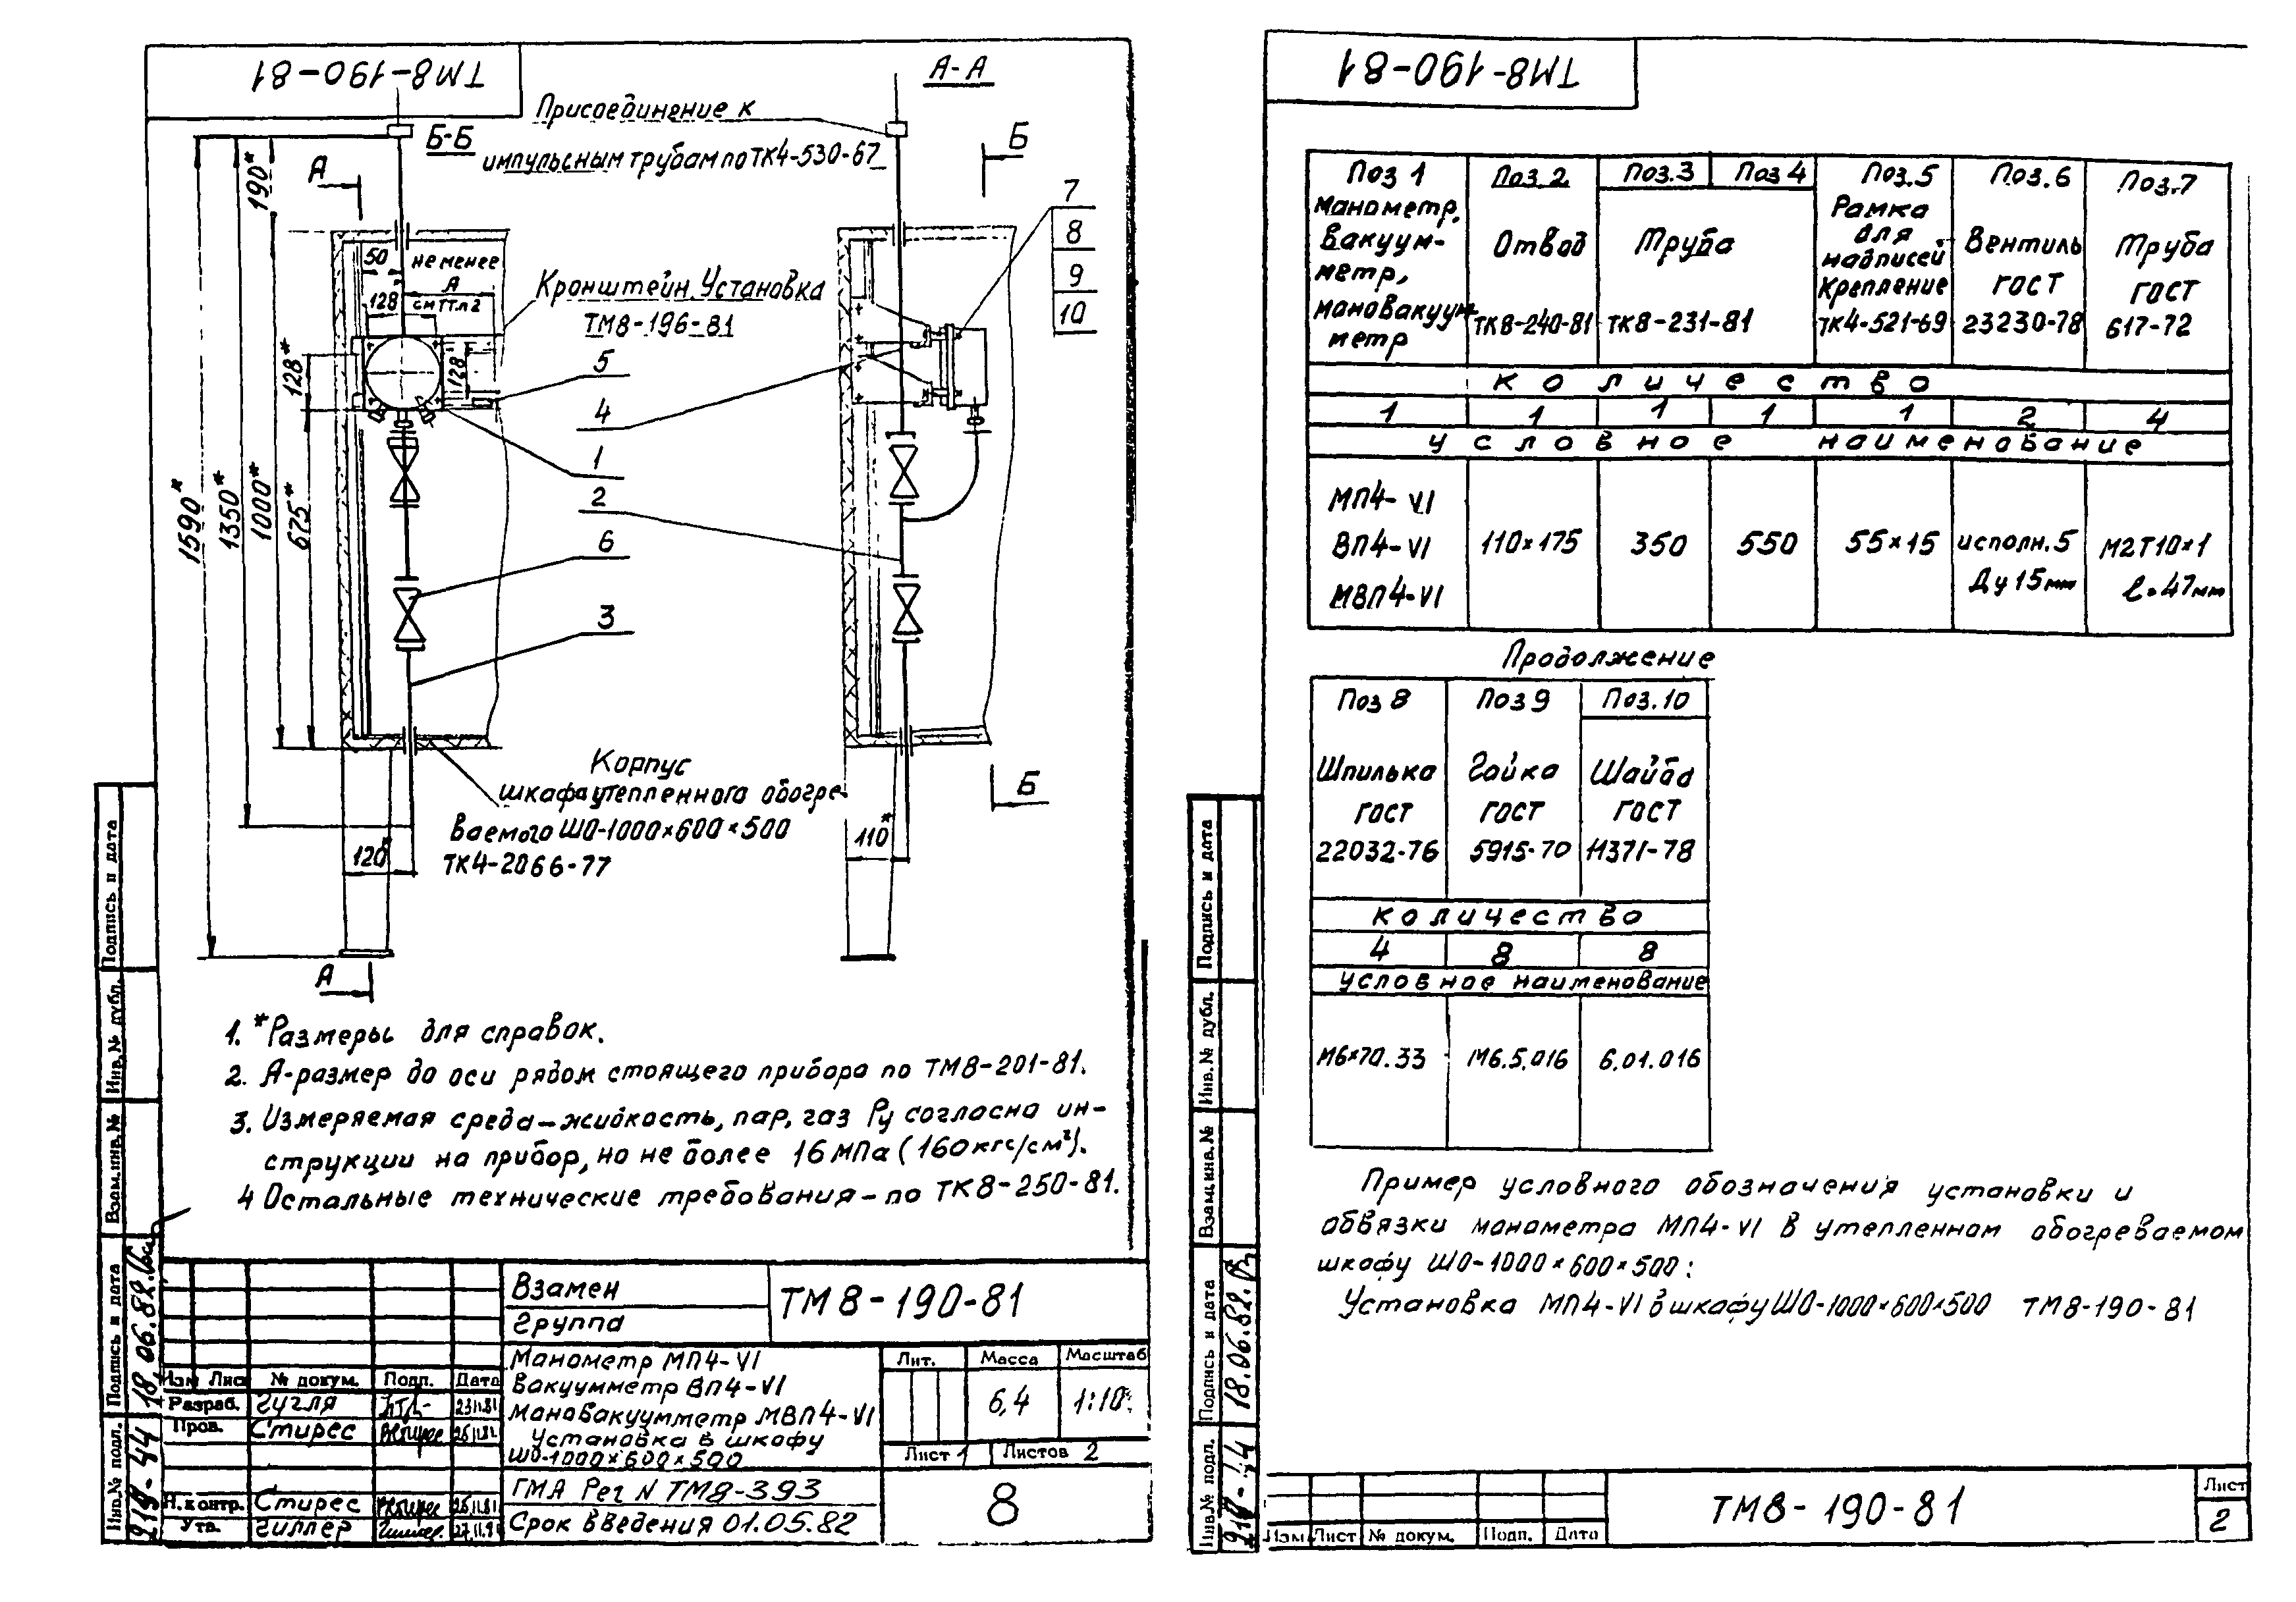 ТМ8-190-81
А-А
Присоединение к
импульсным трубам по ТК4-530-67
Б-Б
Б
А
190*
50
не менее
А
см ТТ п 2
128
Кронштейн. Установка
ТМ8-196-81
7
8
9
10
128*
128
5
4
1
2
6
3
1590*
1350*
1000*
675*
Корпус
шкафа утепленного обогре-
ваемого ШО-1000×600×500
ТК4-2066-77
Б
120*
110*
А
1. *Размеры для справок.
2. А-размер до оси рядом стоящего прибора по ТМ8-201-81.
3. Измеряемая среда-жидкость, пар, газ Ру согласно ин-
струкции на прибор, но не более 16 МПа (160 кгс/см²).
4 Остальные технические требования-по ТК8-250-81.
Подпись и дата
Инв.№ дубл.
Взам.инв.№
Подпись и дата
18.06.82.
Инв.№ подл.
Взамен
Группа
ТМ8-190-81
Манометр МП4-VI
Вакуумметр ВП4-VI
Мановакуумметр МВП4-VI
Установка в шкафу
ШО-1000×600×500
Лит. Масса Масштаб
6,4 1:10
Лист 1 Листов 2
Изм Лис № докум. Подп. Дата
Разраб. Гугля 23.11.81
Пров. Стирес
Н.контр. Стирес 26.11.81
Утв. Гиллер
ГМА Рег N ТМ8-393
Срок введения 01.05.82
8
ТМ8-190-81
Поз 1 Поз 2 Поз.3 Поз 4 Поз.5 Поз.6 Поз.7
Манометр,
вакуум-
метр,
мановакуум-
метр
Отвод
ТК8-240-81
Труба
ТК8-231-81
Рамка
для
надписей
Крепление
ТК4-521-69
Вентиль
ГОСТ
23230-78
Труба
ГОСТ
617-72
количество
1 1 1 1 1 2 4
условное наименование
МП4-VI
ВП4-VI
МВП4-VI
110×175
350
550
55×15
исполн.5
Ду 15мм
М2Т10×1
ℓ=47мм
Продолжение
Поз 8 Поз 9 Поз.10
Шпилька Гайка Шайба
ГОСТ ГОСТ ГОСТ
22032-76 5915-70 11371-78
количество
4 8 8
условное наименование
М6×70.33 М6.5.016 6.01.016
Пример условного обозначения установки и
обвязки манометра МП4-VI в утепленном обогреваемом
шкафу ШО-1000×600×500:
Установка МП4-VI в шкафу ШО-1000×600×500 ТМ8-190-81
Подпись и дата
Инв.№ дубл.
Взам.инв.№
Подпись и дата
18.06.82.
Инв.№ подл.
Изм Лист № докум. Подп. Дата
ТМ8-190-81
Лист
2